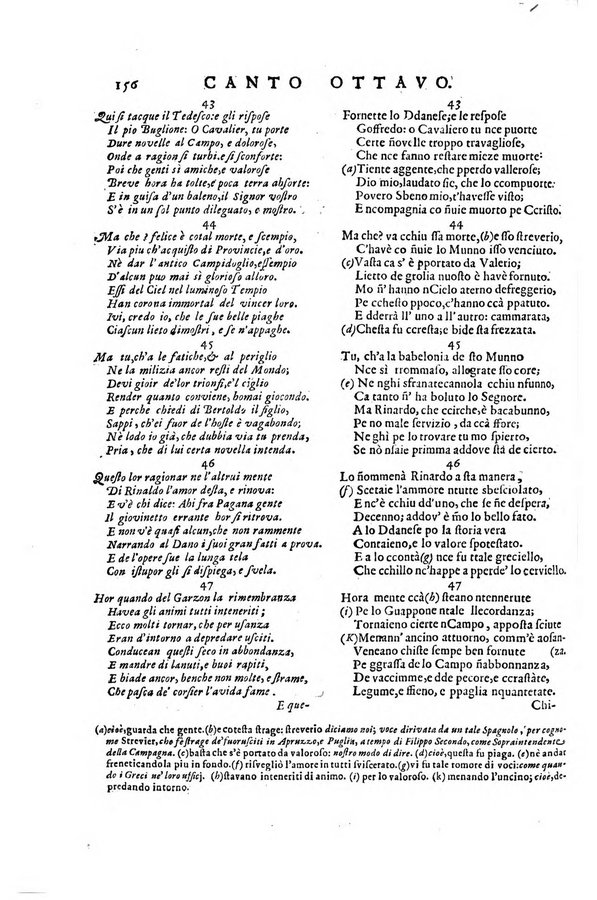 156 CANTO OTTAVO.
43
Qui si tacque il Tedesco: e gli rispose
Il pio Buglione: O Cavalier, tu porte
Dure novelle al Campo, e dolorose,
Onde a ragion si turbi, e si sconforte:
Poi che genti si amiche, e valorose
Breve hora ha tolte, e poca terra absorte:
E in guisa d'un baleno, il Signor vostro
S'è in un sol punto dileguato, e mostro.
44
Ma che? felice è cotal morte, e scempio,
Via piu ch'acquisto di Provincie, e d'oro.
Nè dar l'antico Campidoglio, essempio
D'alcun puo mai sì glorioso alloro.
Essi del Ciel nel luminoso Tempio
Han corona immortal del vincer loro.
Ivi, credo io, che le sue belle piaghe
Ciascun lieto dimostri, e se n'appaghe.
45
Ma tu, ch'a le fatiche, & al periglio
Ne la milizia ancor resti del Mondo;
Devi gioir de'lor trionfi, e'l ciglio
Render quanto conviene, homai giocondo.
E perche chiedi di Bertoldo il figlio,
Sappi, ch'ei fuor de l'hoste è vagabondo;
Nè lodo io già, che dubbia via tu prenda,
Pria, che di lui certa novella intenda.
46
Questo lor ragionar ne l'altrui mente
Di Rinaldo l'amor desta, e rinova:
E v'è chi dice: Ahi fra Pagana gente
Il giovinetto errante hor si ritrova.
E non v'è quasi alcun, che non rammente
Narrando al Dano i suoi gran fatti a prova.
E de l'opere sue la lunga tela
Con istupor gli si dispiega, e svela.
47
Hor quando del Garzon la rimembranza
Havea gli animi tutti inteneriti;
Ecco molti tornar, che per usanza
Eran d'intorno a depredare usciti.
Conducean questi seco in abbondanza,
E mandre di lanuti, e buoi rapiti,
E biade ancor, benche non molte, e strame,
Che pasca de' corsier l'avida fame.
E que-
43
Fornette lo Ddanese; e le respose
Goffredo: o Cavaliero tu nce puorte
Certe ñovelle troppo travagliose,
Che nce fanno restare mieze muorte:
(a)Tiente aggente, che pperdo vallerose;
Dio mio, laudato sic, che lo ccompuorte.
Povero Sbeno mio, t'havesse visto;
E ncompagnia co ñuie muorto pe Ccristo.
44
Ma che? va cchiu ssa morte, (b)e sso streverio,
C'havè co ñuie lo Munno isso venciuto.
(c)Vasta ca s' è pportato da Valerio;
Lietto de grolia nuosto è havè fornuto.
Mo ñ' hanno nCielo aterno defreggerio,
Pe cchesto ppoco, c'hanno ccà ppatuto.
E dderrà ll' uno a ll'autro: cammarata,
(d)Chesta fu ccresta; e bide sta frezzata.
45
Tu, ch'a la babelonia de sto Munno
Nce sì trommaso, allograte sso core;
(e) Ne nghi sfranatecannola cchiu nfunno,
Ca tanto ñ' ha boluto lo Segnore.
Ma Rinardo, che ccirche, è bacabunno,
Pe no male servizio, da ccà ffore;
Ne ghì pe lo trovare tu mo spierto,
Se ne saje primma addove sta de cierto.
46
Lo ñommenà Rinardo a sta manera,
(f) Scetaie l'ammore ntutte sbesciolato,
E nc'è cchiu dd'uno, che se ñe despera,
Decenno; addov' è m̃o lo bello fato.
A lo Ddanese po la storia vera
Contaieno, e lo valore spotestato.
E a lo ccontà(g) nce fu tale greciello,
Che cchillo nc'happe a pperde' lo cerviello.
47
Hora mente ccà(h) steano ntennerute
(i) Pe lo Guappone ntale llecordanza;
Tornaieno cierte nCampo, apposta sciute
(K)Menann' ancino attuorno, comm'è aosan-
Veneano chiste sempe ben fornute (za.
Pe ggrassa de lo Campo ñabbonnanza,
De vaccimme, e dde pecore, e ccrastate,
Legume, e ffieno, e ppaglia nquantetate.
Chi-
(a)cioè, guarda che gente.(b)e cotesta strage: streverio diciamo noi; voce dirivata da un tale Spagnolo, per cogno-
me Strevier, che fè strage de'fuorusciti in Apruzzo, e Puglia, a tempo di Filippo Secondo, come Sopraintendente
della Campagna. (c)basta che s'è portato da valoroso: nostro modo di dire. (d)cioè, fu piaga. (e) nè andar
freneticandola piu in fondo. (f) risvegliò l'amore in tutti sviscerato. (g)vi fu tale romore di voci: come quan-
do i Greci ne' loro ufficj. (h)stavano inteneriti di animo. (i) per lo valoroso. (k) menando l'uncino; cioè, de-
predando intorno.